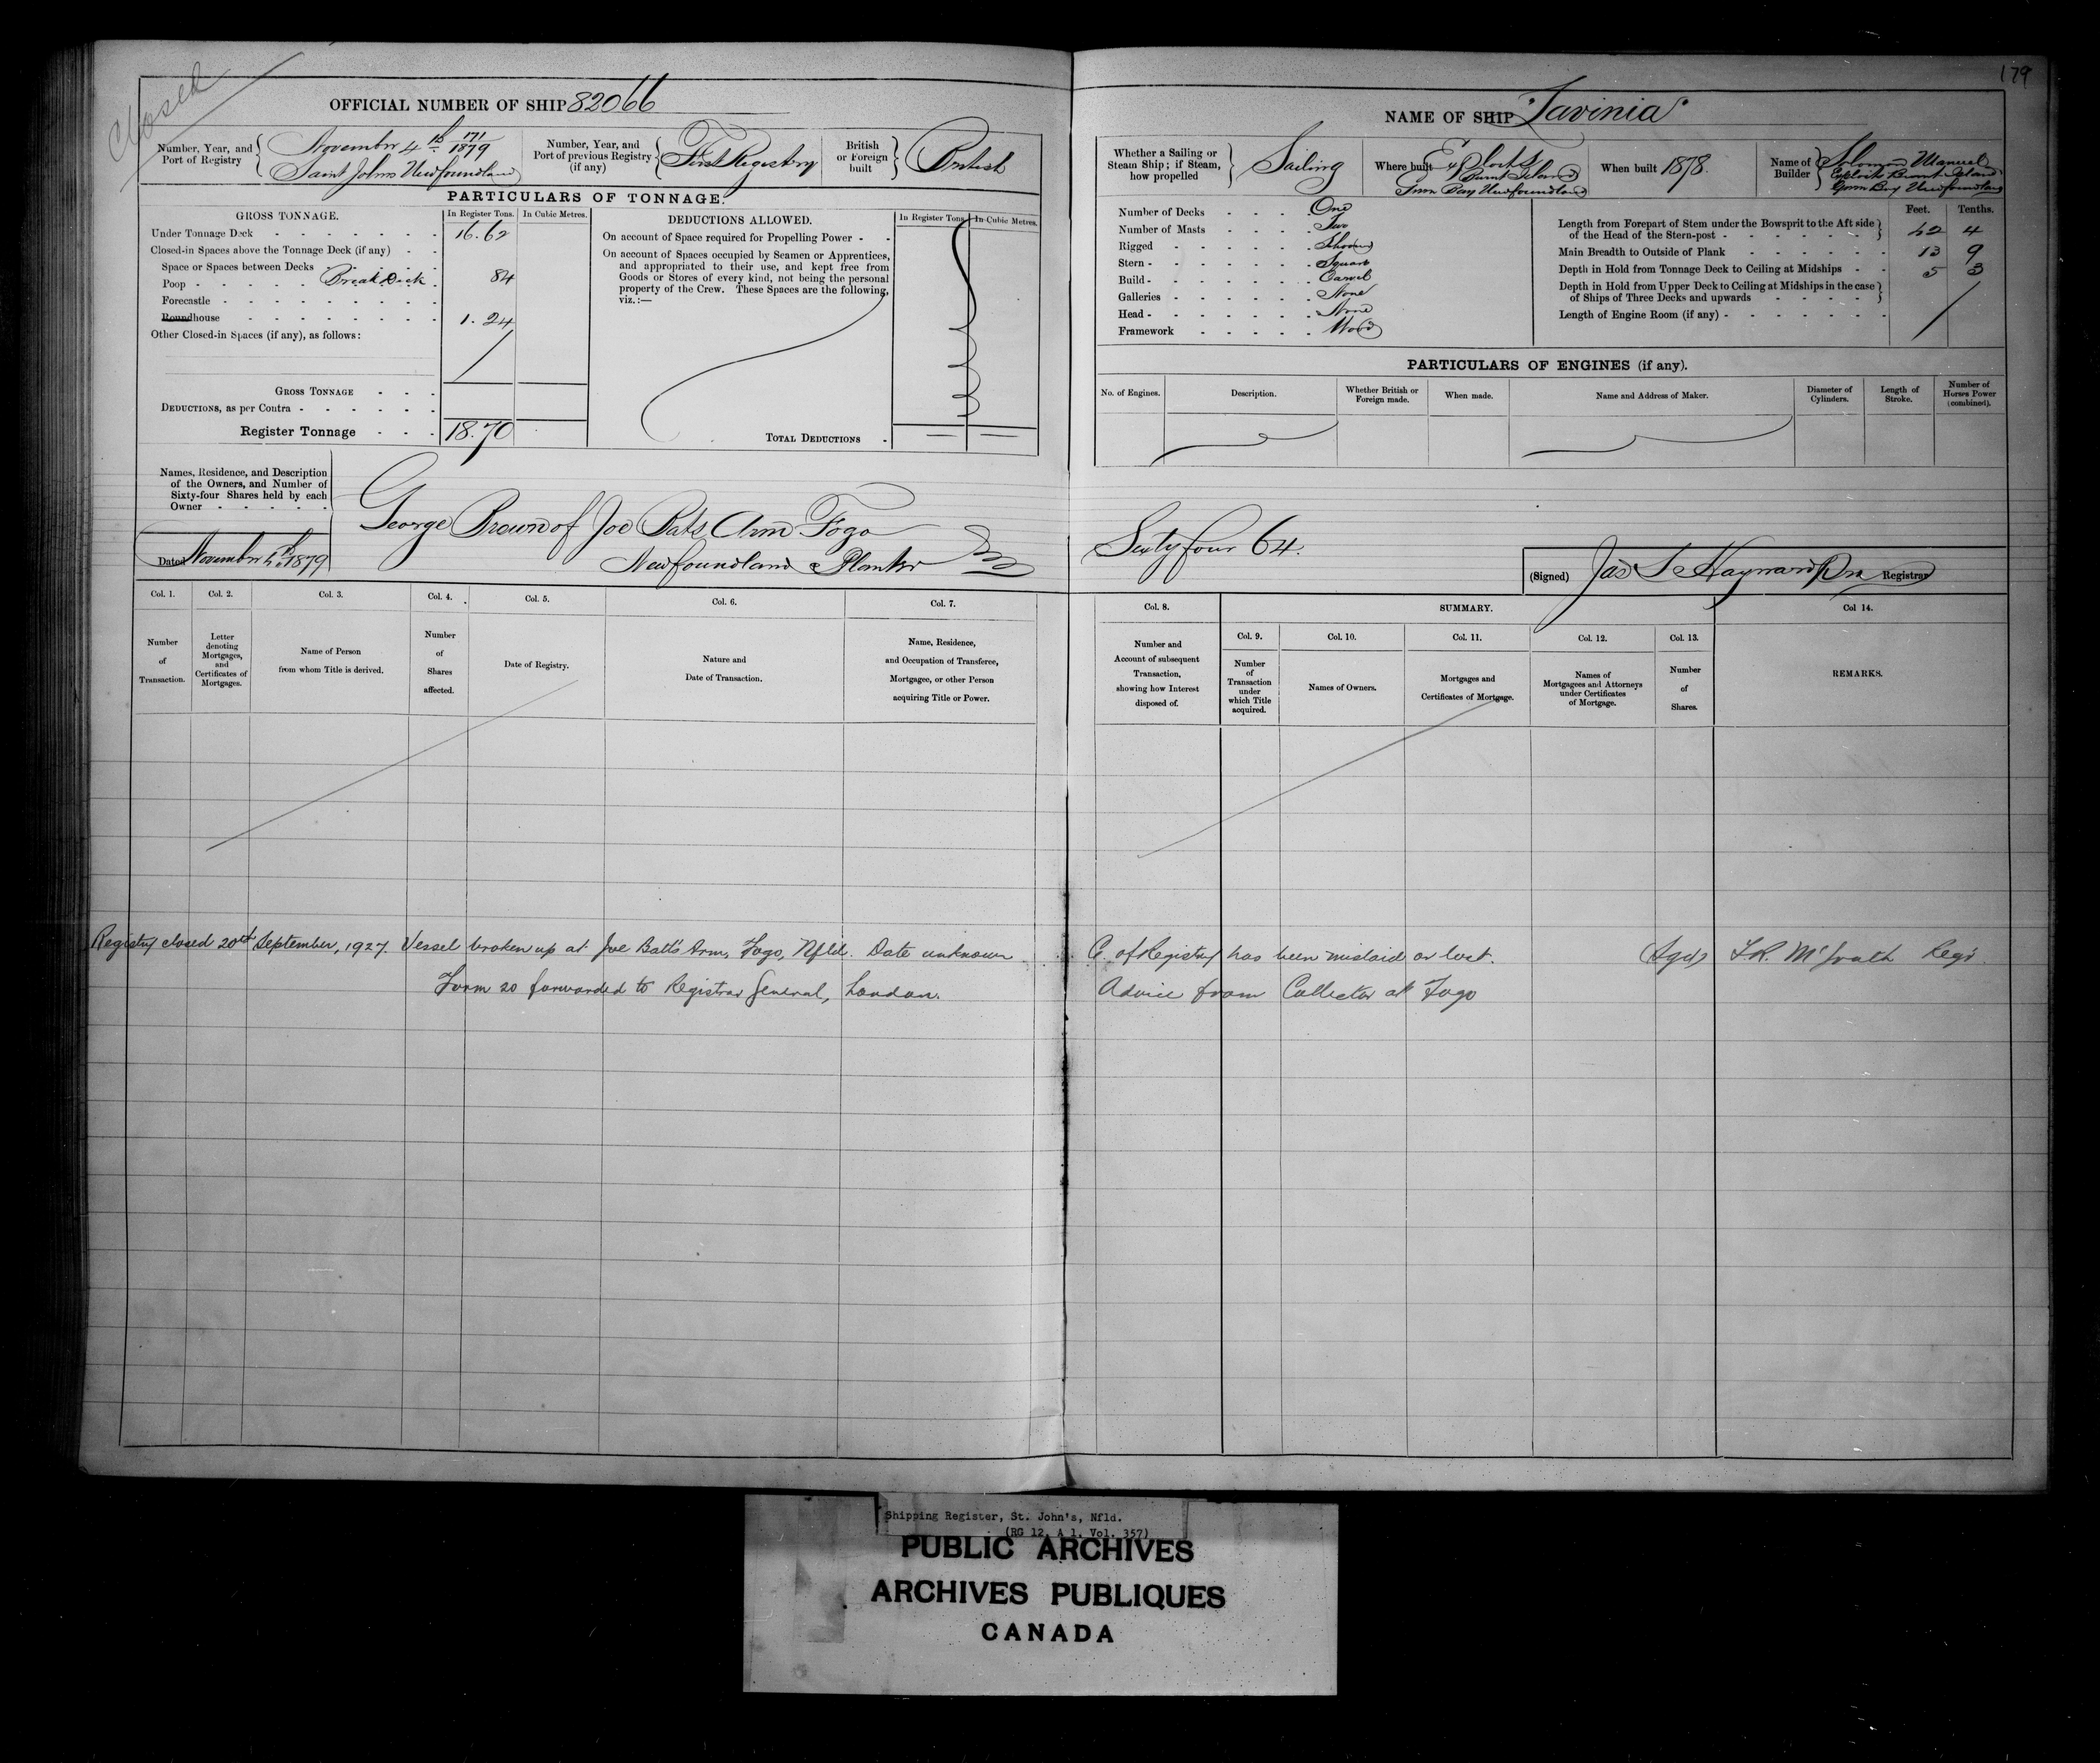 Closed
179
OFFICIAL NUMBER OF SHIP 82066
Number, Year, and Port of Registry
November 4th 171/1879
Saint Johns Newfoundland
Number, Year, and Port of previous Registry (if any)
First Registry
British or Foreign built
British
PARTICULARS OF TONNAGE.
GROSS TONNAGE.
In Register Tons.
In Cubic Metres.
Under Tonnage Deck 16.62
Closed-in Spaces above the Tonnage Deck (if any)
Space or Spaces between Decks
Poop Break Deck 84
Forecastle
Roundhouse 1.24
Other Closed-in Spaces (if any), as follows:
GROSS TONNAGE
DEDUCTIONS, as per Contra
Register Tonnage 18.70
DEDUCTIONS ALLOWED.
In Register Tons.
In Cubic Metres.
On account of Space required for Propelling Power
On account of Spaces occupied by Seamen or Apprentices,
and appropriated to their use, and kept free from
Goods or Stores of every kind, not being the personal
property of the Crew. These Spaces are the following,
viz.:—
TOTAL DEDUCTIONS
NAME OF SHIP "Lavinia"
Whether a Sailing or Steam Ship; if Steam, how propelled
Sailing
Where built
Exploits
Burnt Island
Green Bay Newfoundland
When built 1878.
Name of Builder
Solomon Manuel
Exploits Burnt Island
Green Bay Newfoundland
Number of Decks One
Number of Masts Two
Rigged Schooner
Stern Square
Build Carvel
Galleries None
Head None
Framework Wood
Feet. Tenths.
Length from Forepart of Stem under the Bowsprit to the Aft side
of the Head of the Stern-post 42 4
Main Breadth to Outside of Plank 13 9
Depth in Hold from Tonnage Deck to Ceiling at Midships 5 3
Depth in Hold from Upper Deck to Ceiling at Midships in the case
of Ships of Three Decks and upwards
Length of Engine Room (if any)
PARTICULARS OF ENGINES (if any).
No. of Engines.
Description.
Whether British or Foreign made.
When made.
Name and Address of Maker.
Diameter of Cylinders.
Length of Stroke.
Number of Horses Power (combined).
Names, Residence, and Description
of the Owners, and Number of
Sixty-four Shares held by each
Owner
Dated November 4th 1879
George Brown of Joe Bats Arm Fogo
Newfoundland Planter
Sixty four 64.
(Signed) Jas S Hayward Registrar
Col. 1.
Number of Transaction.
Col. 2.
Letter denoting Mortgages, and Certificates of Mortgages.
Col. 3.
Name of Person from whom Title is derived.
Col. 4.
Number of Shares affected.
Col. 5.
Date of Registry.
Col. 6.
Nature and Date of Transaction.
Col. 7.
Name, Residence, and Occupation of Transferee, Mortgagee, or other Person acquiring Title or Power.
Col. 8.
Number and Account of subsequent Transaction, showing how Interest disposed of.
SUMMARY.
Col. 9.
Number of Transaction under which Title acquired.
Col. 10.
Names of Owners.
Col. 11.
Mortgages and Certificates of Mortgage.
Col. 12.
Names of Mortgagees and Attorneys under Certificates of Mortgage.
Col. 13.
Number of Shares.
Col 14.
REMARKS.
Registry closed 20th September, 1927. Vessel broken up at Joe Batt's Arm, Fogo, Nfld. Date unknown
C. of Registry has been mislaid or lost. (Sgd) Regr.
Form 20 forwarded to Registrar General, London.
Advice from Collector at Fogo
Shipping Register, St. John's, Nfld.
(RG 12, A 1, Vol. 357)
PUBLIC ARCHIVES
ARCHIVES PUBLIQUES
CANADA